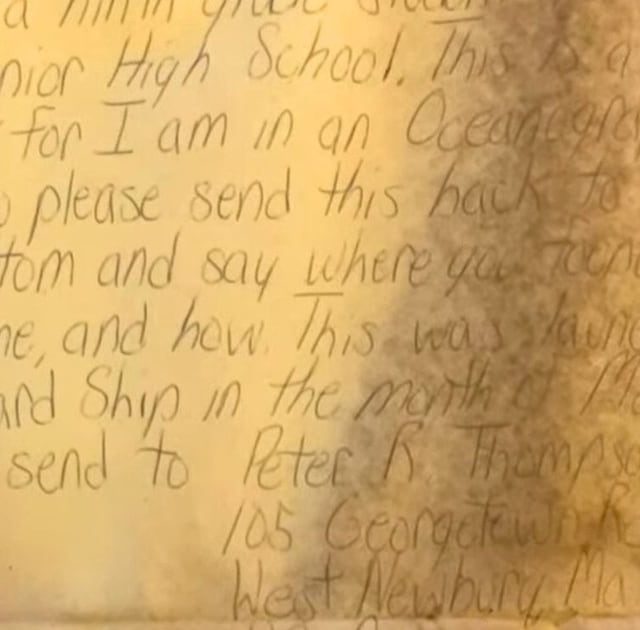 a ninth grade student
nior High School. This is a
for I am in an Oceanogra
please send this back to
tom and say where you foun
me, and how. This was laun
ard Ship in the month of M
send to Peter R Thompso
105 Georgetown R
West Newbury Ma